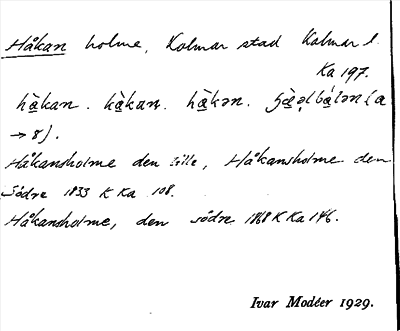 Håkan holme, Kalmar stad Kalmar l.
Ka 197.
hàkan. hàkan. hàkən.
→ 8).
Håkansholme den lille, Håkansholme den
Södre 1833 K Ka 108.
Håkansholme, den södre 1868 K Ka 146.
Ivar Modéer 1929.